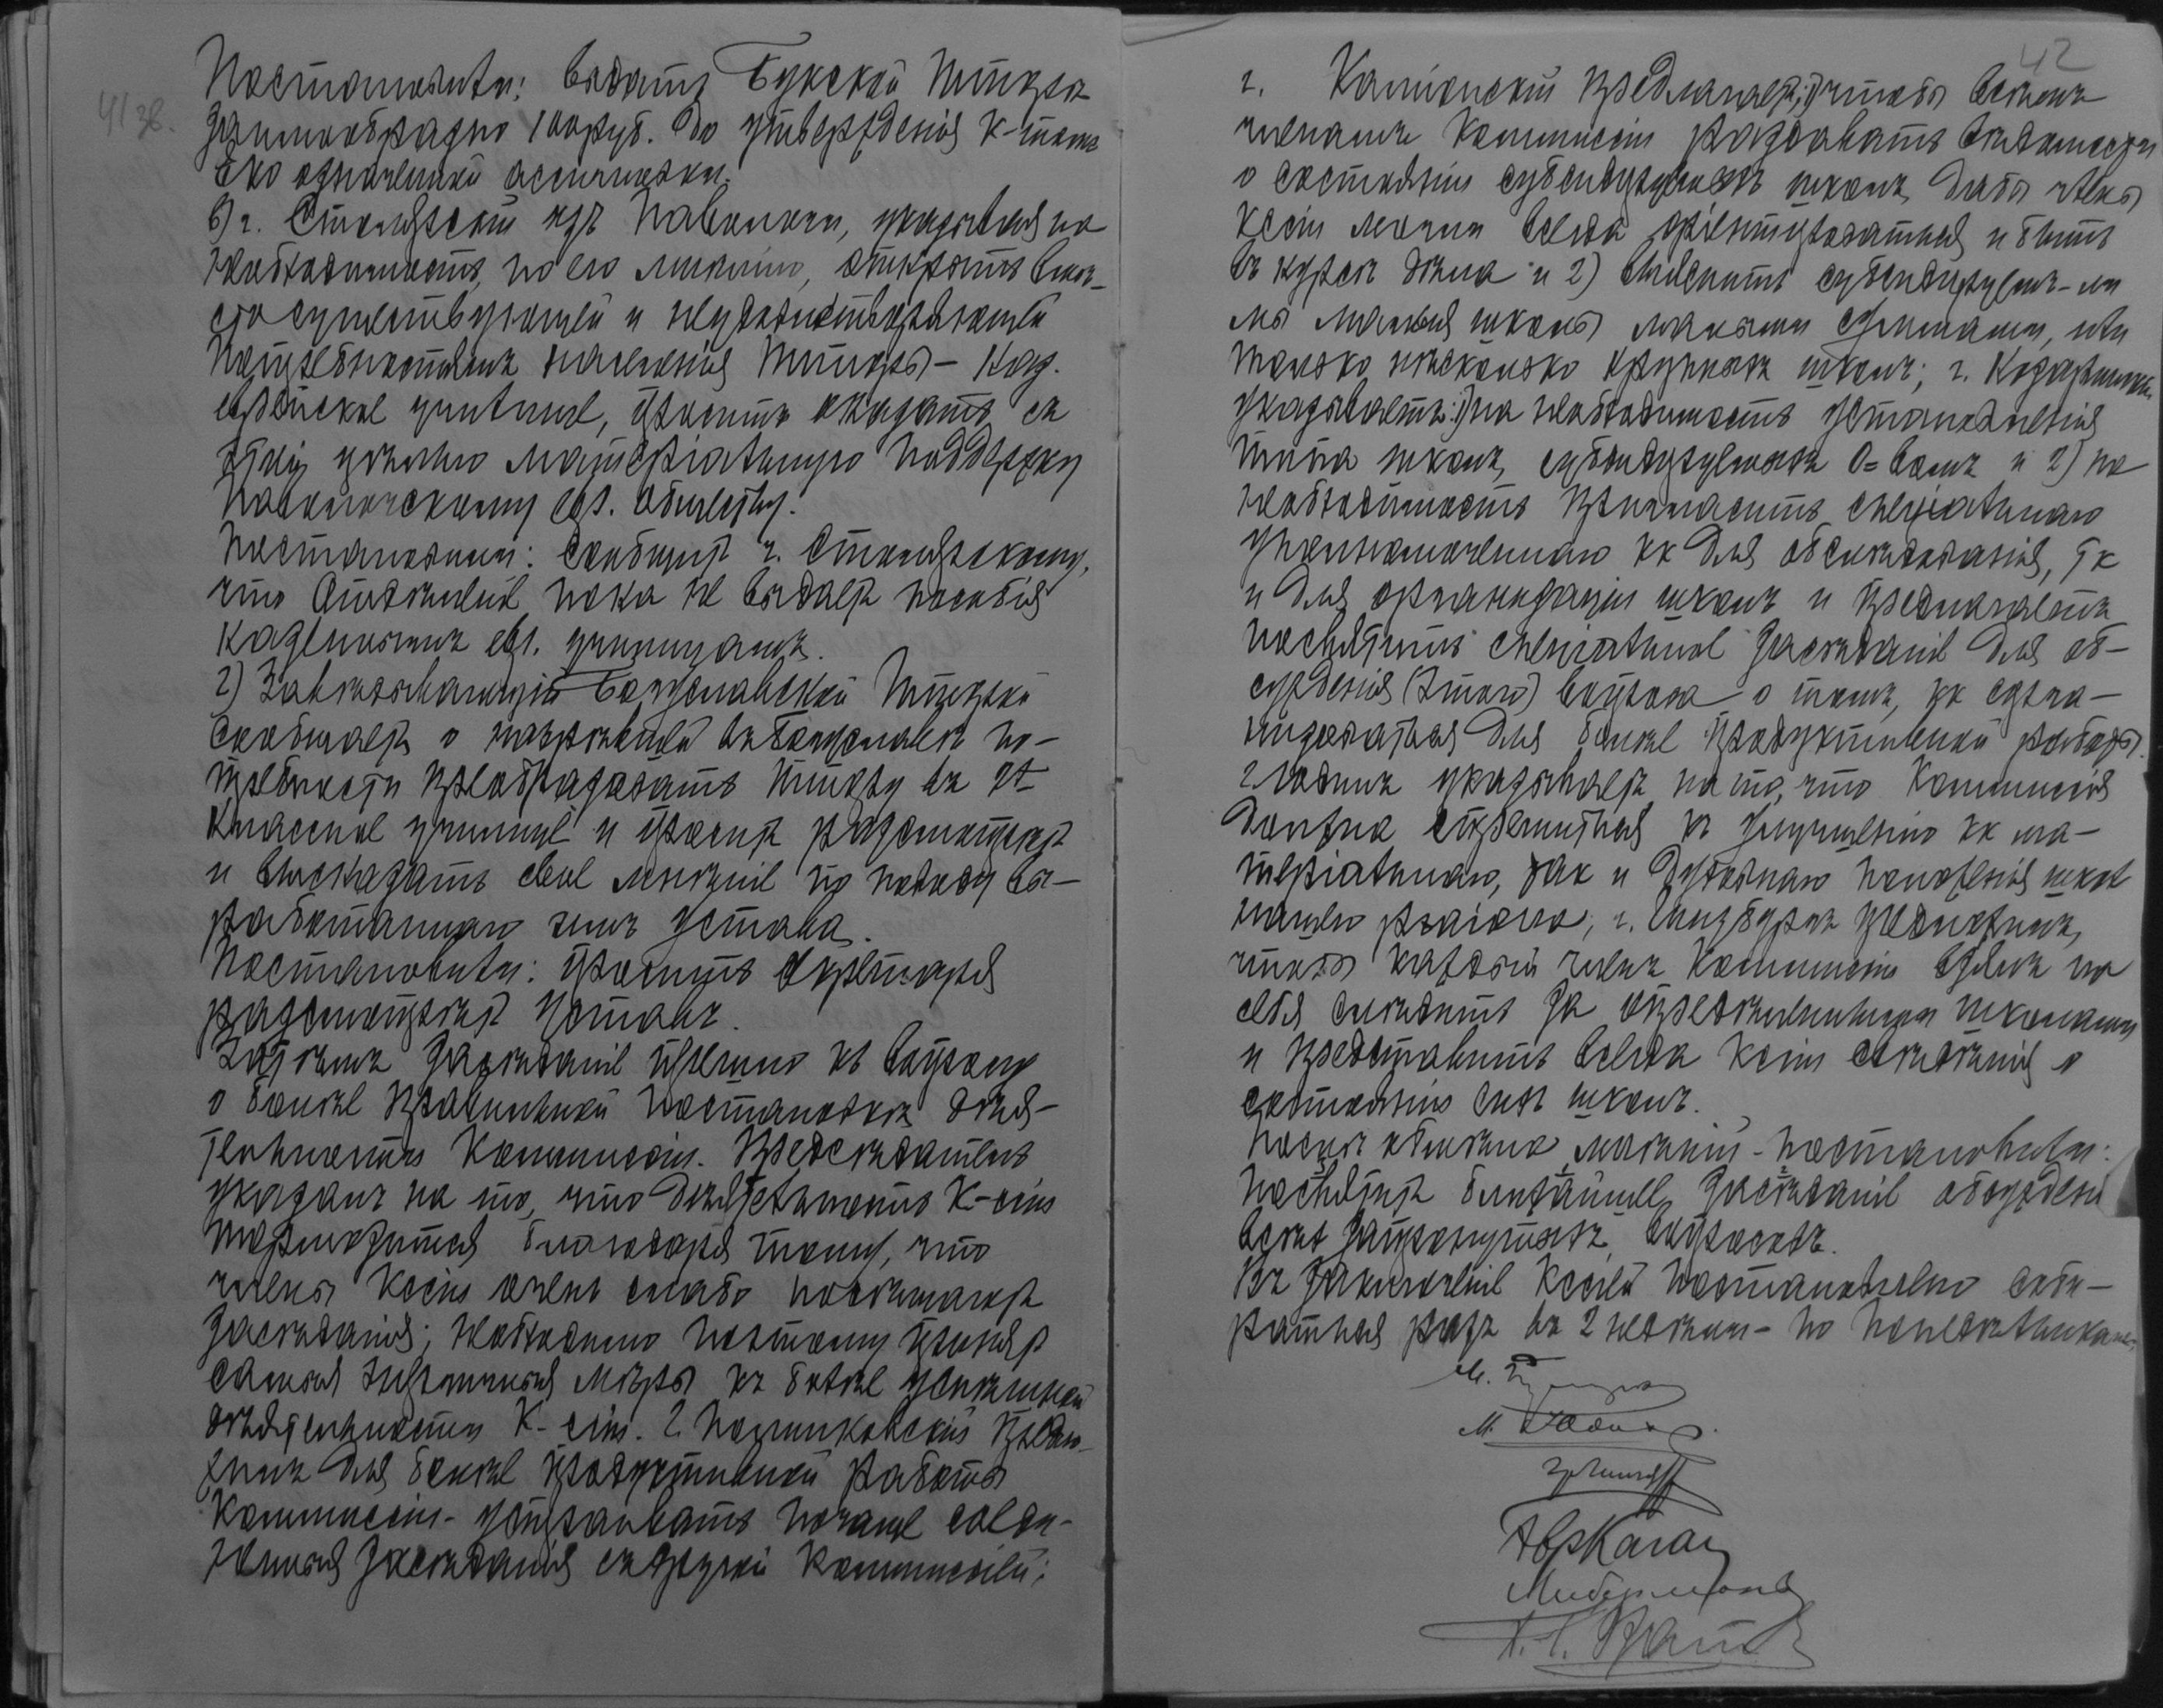 41 зв.
Постановили: выдать Букской Т. Торѣ
заимообразно 100 руб. до утвержденія К-томъ
его означенной ассигновки.
в) г. Столярскій изъ Паволочи, указывая на
необходимость, по его мнѣнію, открыть вмѣ-
сто существующей и неудовлетворяющей
потребностямъ населенія Т. Торы - Каз.
еврейское училище, проситъ оказать съ
этой цѣлью матеріальную поддержку
Паволочскому евр. обществу.
Постановили: Сообщить г. Столярскому,
что Отдѣленіе пока не выдаетъ пособія
казеннымъ евр. училищамъ.
2) Завѣдывающій Богуславской Т. Торой
сообщаетъ о назрѣвшей въ Богуславѣ по-
требности преобразовать Т. Тору въ 2х
классное училище и проситъ разсмотрѣть
и высказать свое мнѣніе по поводу вы-
работаннаго имъ устава.
Постановили: просить секретаря
разсмотрѣть уставъ.
Затѣмъ засѣданіе перешло къ вопросу
о болѣе правильной постановкѣ дѣя-
тельности Коммиссіи. Предсѣдатель
указалъ на то, что дѣятельность К-сіи
тормозится благодаря тому, что
члены К-сіи очень слабо посѣщаютъ
засѣданія; необходимо поэтому принять
самыя энергичныя мѣры къ болѣе успѣшной
дѣятельности К-сіи. г. Полинковскій предло-
жилъ для болѣе продуктивной работы
Коммиссіи - устраивать почаще соеди-
ненныя засѣданія съ другой Коммиссіей;
42
г. Каміонскій предлагаетъ: 1) чтобы всѣмъ
членамъ Коммиссіи раздавать вѣдомости
о состояніи субсидируемыхъ школъ, дабы члены
К-сіи могли всегда оріентироваться и быть
въ курсѣ дѣла и 2) выяснить субсидируемъ-ли
мы малыя школы малыми суммами, или
только нѣсколько крупныхъ школъ; г.
указываетъ: 1) на необходимость установленія
типа школъ, субсидируемыхъ О-вомъ и 2) на
необходимость пригласить спеціальнаго
уполномоченнаго кк для обслѣдованія, тк
и для организаціи школъ и предлагаетъ
посвятить спеціальное засѣданіе для об-
сужденія (этого) вопроса о томъ, кк
для болѣе продуктивной работы.
г. указываетъ на то, что Коммиссія
должна стремиться къ улучшенію кк ма-
теріальнаго, так и духовнаго положенія школ
нашего раіона; г. Гинзбургъ предложилъ,
чтобы каждый членъ Коммиссіи взялъ на
себя слѣдить за опредѣленными школами
и представить всегда К-сіи свѣдѣнія о
состояніи сихъ школъ.
Послѣ обмѣна мнѣній - постановили:
посвятить ближайшее засѣданіе обсужденію
всѣхъ затронутыхъ вопросовъ.
Въ заключеніе К-сіей постановлено соби-
раться разъ въ 2 недѣли - по понедѣльникамъ.